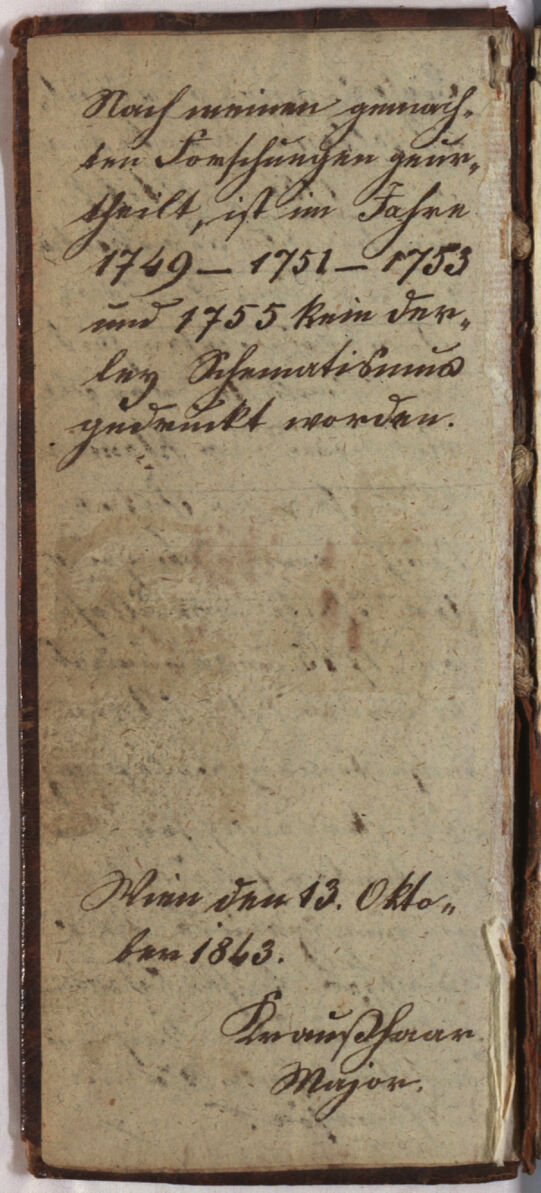 Nach meinen gemach„
ten Forschungen geur„
theilt, ist im Jahre
1749 – 1751 – 1753
und 1755 kein der„
ley Schematismus
gedruckt worden.
Wien den 13. Okto„
ber 1843.
Kraußhaar
Major.